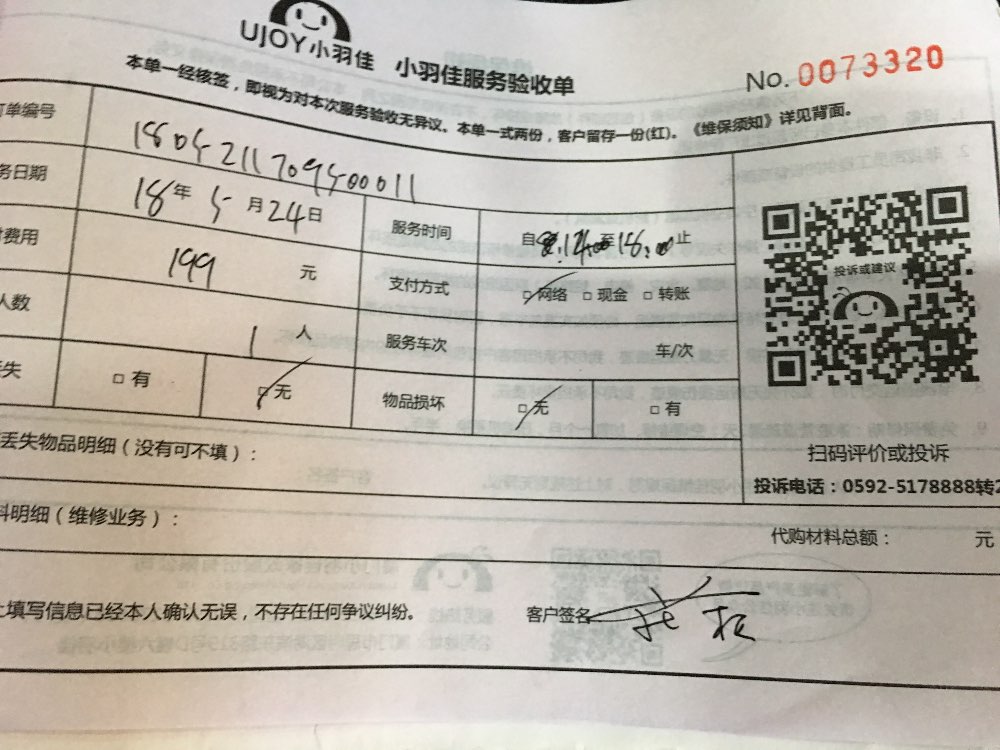 UJOY小羽佳 小羽佳服务验收单
No. 0073320
本单一经核签，即视为对本次服务验收无异议。本单一式两份，客户留存一份(红)。《维保须知》详见背面。
单编号 180521170950001 1
务日期 18年 5月24日 服务时间 自 14:00至18:00止
费用 199 元 支付方式 □网络 □现金 □转账
人数 1 人 服务车次 车/次
失 □有 □无 物品损坏 □无 □有
投诉或建议
扫码评价或投诉
投诉电话：0592-5178888转2
丢失物品明细（没有可不填）：
料明细（维修业务）：
代购材料总额： 元
填写信息已经本人确认无误，不存在任何争议纠纷。 客户签名